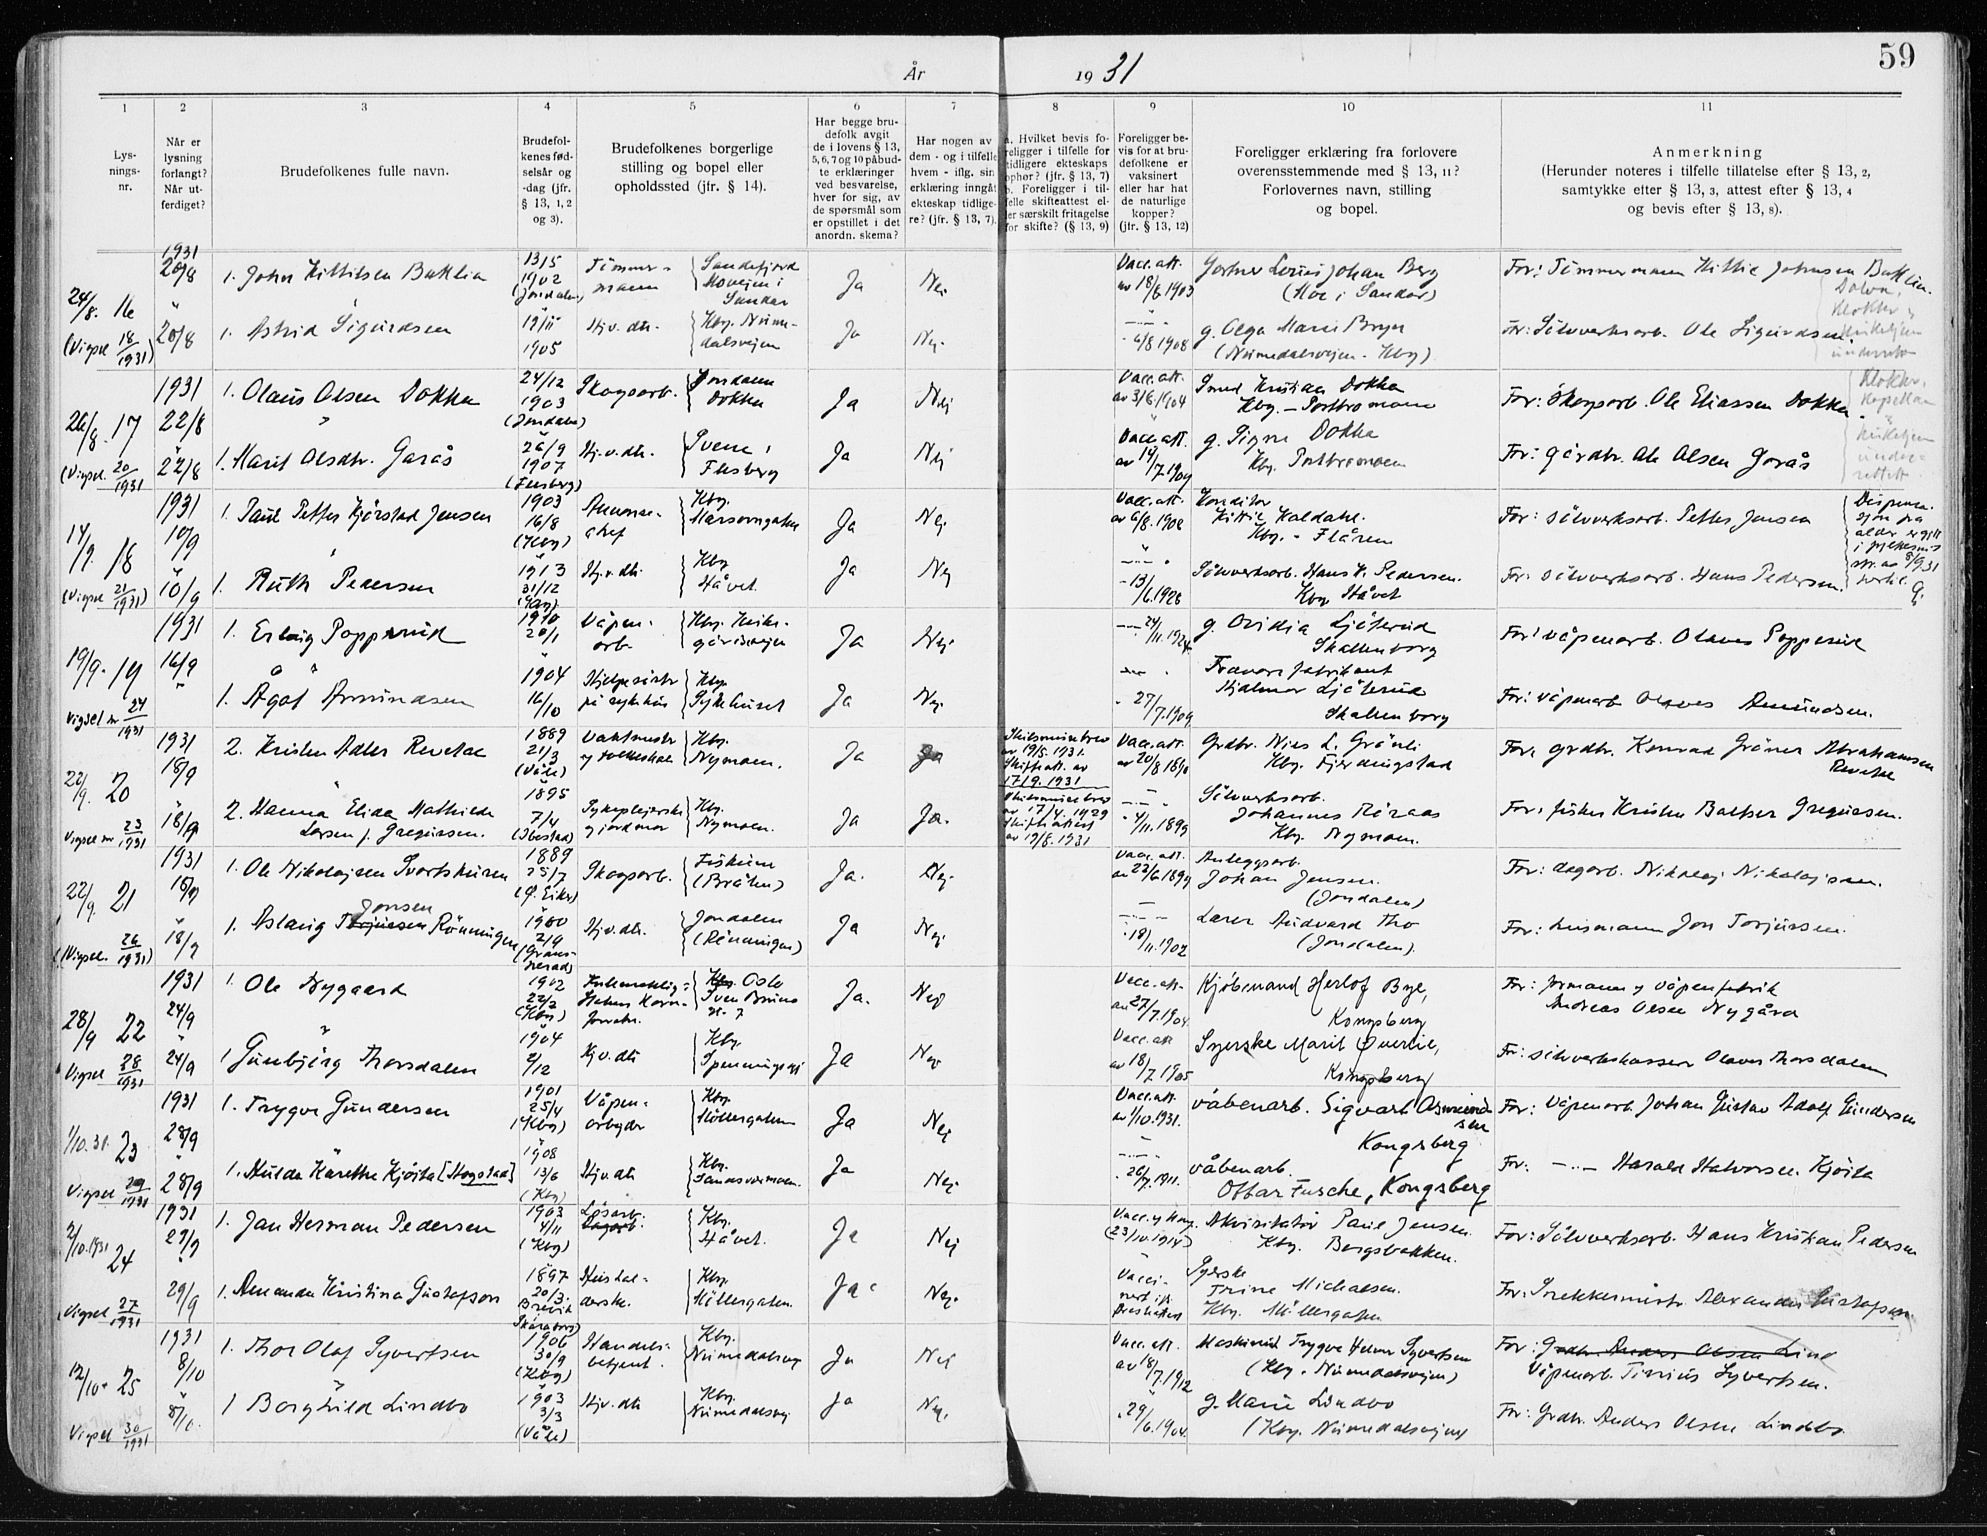 59
År 1931
1 2 3 4 5 6 7 8 9 10 11
Lys-
nings-
nr.
Når er
lysning
forlangt?
Når ut-
ferdiget?
Brudefolkenes fulle navn.
Brudefol-
kenes fød-
selsår og
-dag (jfr.
§ 13, 1, 2
og 3).
Brudefolkenes borgerlige
stilling og bopel eller
opholdssted (jfr. § 14).
Har begge bru-
defolk avgit
de i lovens § 13,
5, 6, 7 og 10 påbud-
te erklæringer
ved besvarelse,
hver for sig, av
de spørsmål som
er opstillet i det
anordn. skema?
Har nogen av
dem - og i tilfelle
hvem - iflg. sin
erklæring inngåt
ekteskap tidlige-
re? (jfr. § 13, 7).
a. Hvilket bevis fo-
religger i tilfelle for
tidligere ekteskaps
ophør? (jfr. § 13, 7)
b. Foreligger i til-
felle skifteattest el-
ler særskilt fritagelse
for skifte? (§ 13, 9)
Foreligger be-
vis for at bru-
defolkene er
vaksinert
eller har hat
de naturlige
kopper?
(jfr. § 13, 12)
Foreligger erklæring fra forlovere
overensstemmende med § 13, 11?
Forlovernes navn, stilling
og bopel.
Anmerkning
(Herunder noteres i tilfelle tillatelse efter § 13, 2,
samtykke efter § 13, 3, attest efter § 13, 4
og bevis efter § 13, 8).
24/8. 16 (Vigsel 18/1931)
1931 20/8 1. John Kittilsen Baklia 13/5 1902 (Jondalen) Tømmer-mann Sandefjord Movejen i Sandar Ja Nej Vacc.att. av 18/6 1903 Gartner Louis Johan Berg (Moe i Sandar) For: Tømmermann Kittil Johnsen Baklia.
20/8 1. Astrid Sigurdsen 19/11 1905 Hj.v.dtr. Kbg. Nume-dalsvejen Ja Nej 6/8 1908 g. Olga Marie Bryn (Numedalsvejen - Kbg) For: Sølvverksarb. Ole Sigurdsen.
26/8. 17 (Vigsel 20/1931)
1931 22/8 1. Olaus Olsen Dokka 24/12 1903 (Jondalen) Skogsarb. Jondalen Dokka Ja Nej Vacc.att. av 3/6.1904 Smed Kristian Dokka Kbg. - Portbromoen For: Skogsarb. Ole Eliassen Dokka.
22/8 1. Marit Olsdtr. Garås 26/9 1907 (Flesberg) Hj.v.dtr. Svene i Flesberg Ja Nej Vacc.att. av 19/7.1909 g. Signe Dokka Kbg. Portbromoen For: gårdbr. Ole Olsen Garås
14/9. 18 (Vigsel 21/1931)
1931 10/9 1. Paul Petter Kjørstad Jensen 1903 16/8 (Kbg) Annonse-chef Kbg. Ja Nej Vacc.att. av 6/8.1908 Konditor Kittil Kaldahl. Kbg. - Flåren For: Sølvverksarb. Petter Jensen
10/9 1. Ruth Pedersen 1913 31/12 (Kbg) Hj.v.dtr. Kbg Håvet. Ja Nej 13/6.1928 Sølvverksarb. Hans K. Pedersen. Kbg Håvet For: Sølvverksarb. Hans Pedersen.
19/9. 19 Vigsel nr 24/1931
1931 16/9 1. ErlingOpperud 1910 20/1 Våpen-arb. Kbg. Ja Nej 24/11.1924 g. Ovidia Ljøterud Skallenborg For: Våpenarb. Olaves Popperud
1. Ågot Amundsen 1904 16/10 Hjelpesøster på sykehus Kbg. Sykehuset Ja Nej 27/7.1909 Trævarefabrikant Hjalmar Ljøterud Skallenborg For: Våpenarb Olaves Amundsen.
22/9. 20 Vigsel nr 23/1931
1931 18/9 2. Kristen Adler Revetal 1889 21/3 (Våle) Vaktmester Kbg. Nymoen. Ja Ja Skilsmissebrev av 19/5.1931. Skifteatt. av 17/9.1931 Vacc.att. av 20/8 1890 Grdbr. Nils L. Grønli Kbg. Fjerdingstad For: grdbr. Konrad Gröner Abrahamsen Revetal
18/9 2. Hanna Elida Mathilde Larsen f. Gregusen. 1895 7/4 (Ibestad) Sykeplejerske og jordmor Kbg. Nymoen. Ja Ja. Skilsmissebrev av 17/4.1929 Skifteattest av 19/8.1931 4/11.1899 Sølvverksarb. Johannes Røraas Kbg. Nymoen. For: fisker Kristen Baltser Gregusen.
22/9. 21 (Vigsel. 26/1931)
1931 18/9 1. Ole Nikolajsen Svartskuren 1889 25/7 (Ø. Eiker) Skogsarb. Fiskum (Bråten) Ja. Nej Vacc.att. av 22/6.1899 Anleggsarb. Johan Jensen. (Jondalen) For: dagarb. Nikolaj Nikolajsen.
18/9 1. Aslaug Jonsen Rønningen 1900 2/9 (Gransherad) Hj.v.dtr. Jondalen (Rönningen) Ja Nej. 18/11.1902 Lærer Audvard Tho (Jondalen) For: husmann Jon Torjussen.
28/9 22 Vigsel 28/1931
1931 24/9 1. Ole Nygaard 1902 22/2 (Kbg) Oslo Sven Bruns gt. 7 Ja. Nej Vacc.att. av 27/7.1904. Kjøbmand Herlof Bye, Kongsberg For: formann v Våpenfabrik Andreas Olsen Nygård
24/9 1 Gunbjörg Thorsdalen 1904 2/12 Hj.v.dtr Kbg. Ja Nej Vacc.att av 18/7.1905 Syerske Marit Øverlie, Kongsberg F: Sølvverkskasserer Olaves Thorsdalen
1/10.31. 23 Vigsel 29/1931
1931 28/9 1. Trygve Gundersen 1901 25/4 (Kbg) Våpen-arbejder Kbg. Møllergaten Ja Nej Vacc.att. av 1/10.1931. Våbenarb. Sigvart Asmundsen Kongsberg For: Våpenarb. Johan Gustav Adolf Gundersen
28/9 1. Hulda Kårethe Kjøita [Hogstad] 1908 13/6 (Kbg) Hj.v.dtr Kbg. Ja Nej. 26/7.1911. Våbenarb. Ottar Fusche, Kongsberg For: Harald Halvorsen Kjøita
2/10.1931 24 (Vigsel 27/1931
1931 29/9 1. Jan Herman Pedersen 1903 4/11 (Kbg) Løsarb. Kbg. Håvet. Ja Nej (23/10.1914) Akvisitør Paul Jensen Kbg. Bergsbakken. For: Sølvverksarb. Hans Kristian Pedersen
29/9 1. Amanda Kristina Gustafson 1897 20/3. Hushol-derske. Kbg. Möllergaten. Ja Nej. Syerske Trine Michaelsen. Kbg. Möllergaten For: Snekkermester Alexander Gustafson.
12/10. 25 Vigsel 30/1931
1931 8/10 1. Thor Olaf Syvertsen 1906 30/9 (Kbg) Handels-betjent. Kbg. Numedalsvej Ja Nej Vacc.att. av 18/7.1912 Maskinist Trygve Helmer Syvertsen (Kbg. Numedalsvejen) For: Grdbr. Anders Olsen Lind Våpenarb. Tinius Syvertsen.
8/10. 1 Borghild Lindbo 1903 3/3 (Våle) Hj.v.dtr Kbg. Numedalsvej Ja Nej. 29/6.1904 g. Marie Lindbo (Kbg. Numedalsvejen) For: Grdbr. Anders Olsen Lindbo